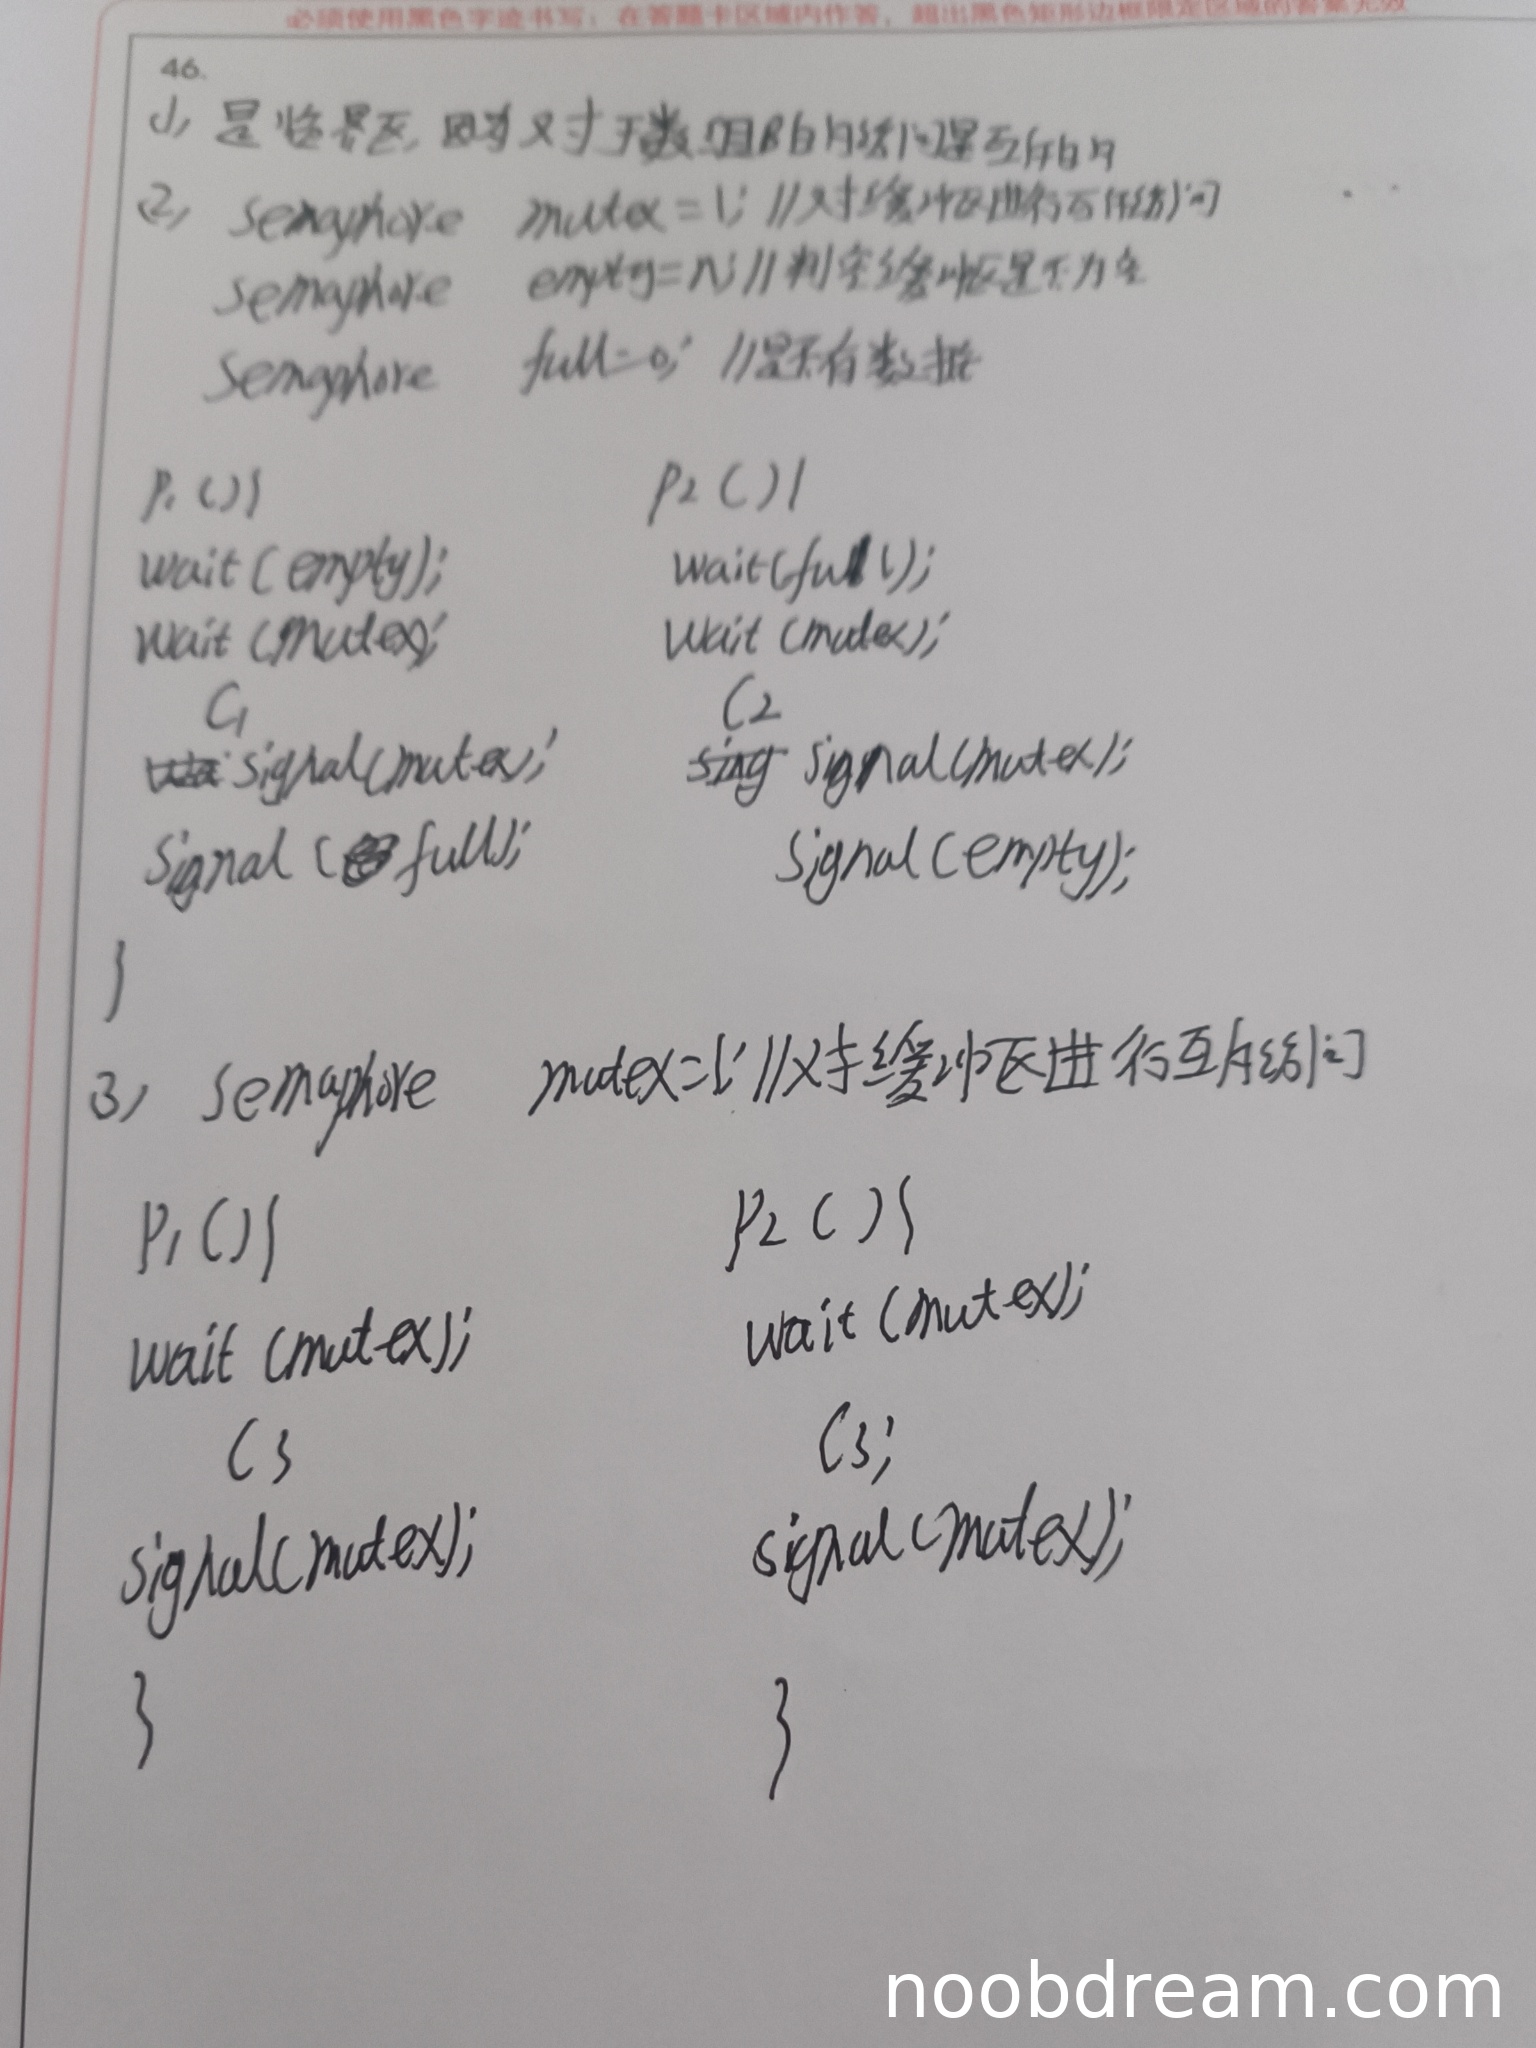 必须使用黑色字迹书写；在答题卡区域内作答，超出黑色矩形边框限定区域的答案无效
46.
1) 是临界区, 因为对于数组B的访问是互斥的
2) semaphore mutex=1; //对缓冲区进行互斥访问
semaphore empty=n; //判空缓冲区是否为空
semaphore full=0; //是否有数据
P1(){ P2(){
wait(empty); wait(full);
wait(mutex); wait(mutex);
C1 C2
signal(mutex); sing signal(mutex);
signal(full); signal(empty);
}
3) semaphore mutex=1; //对缓冲区进行互斥访问
P1(){ P2(){
wait(mutex); wait(mutex);
C3 C3;
signal(mutex); signal(mutex);
} }
noobdream.com